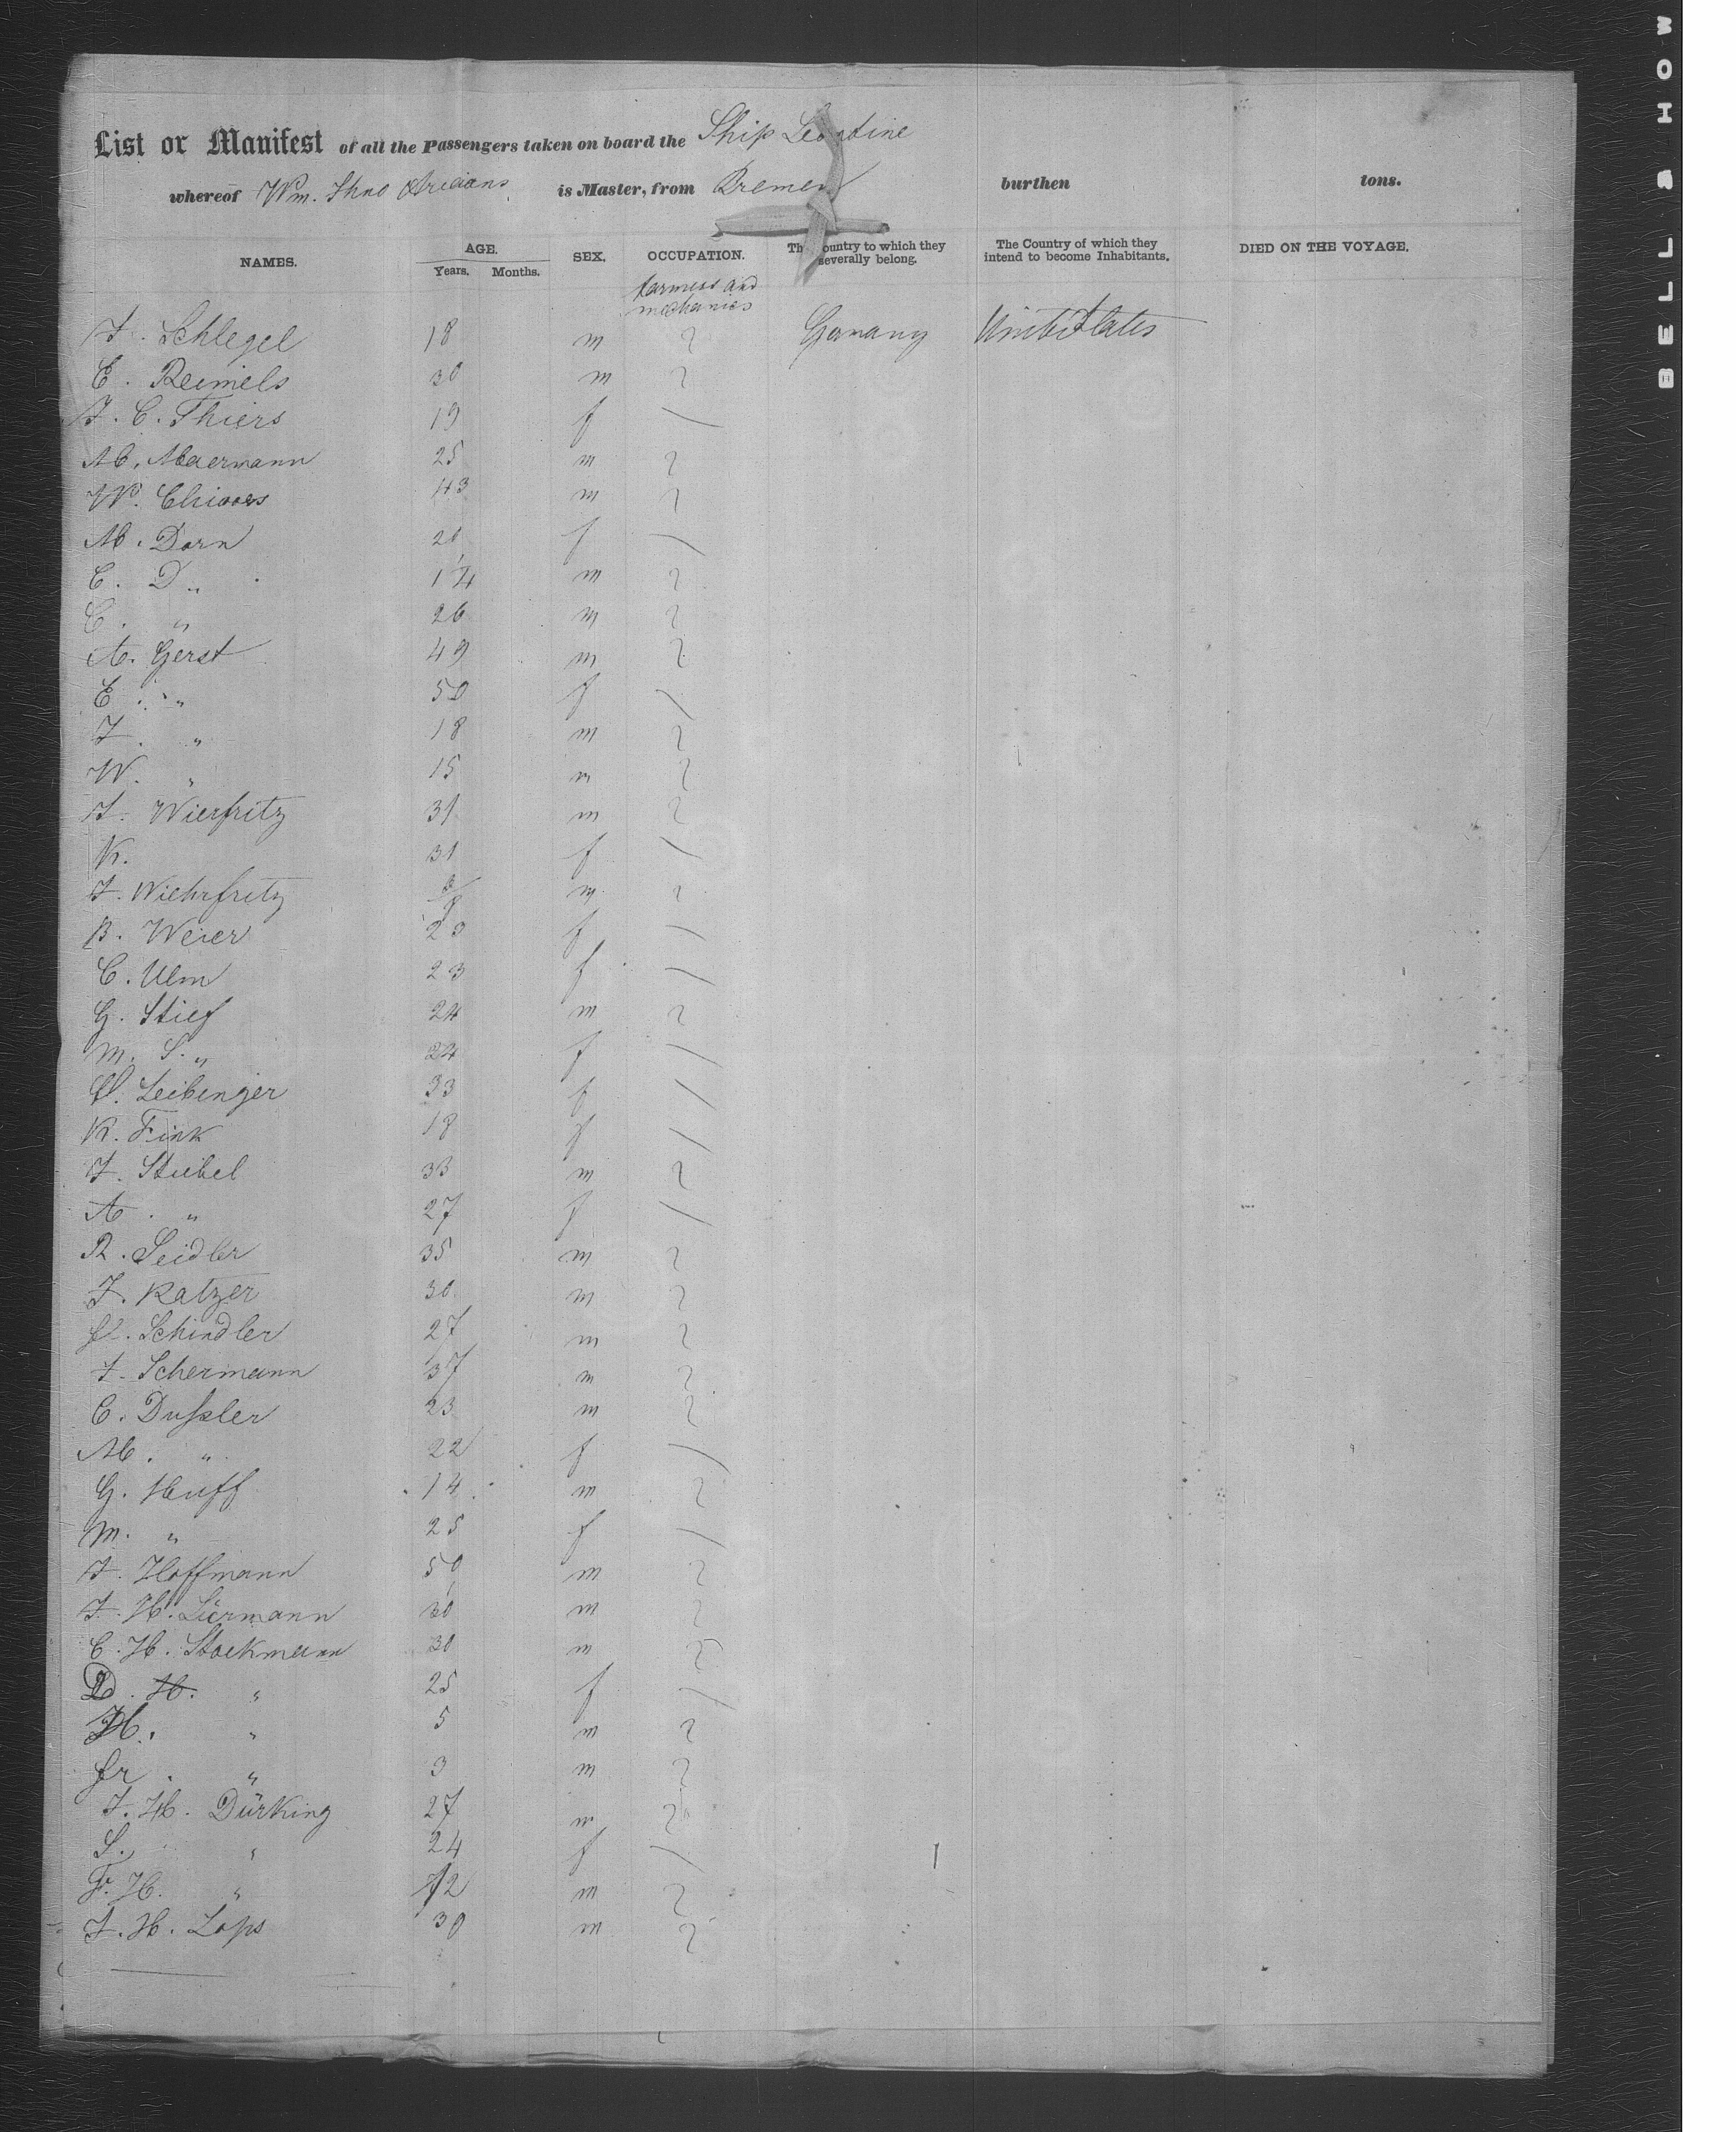 List or Manifest of all the Passengers taken on board the Ship Leontine
whereof Wm. Ariaans is Master, from Bremen burthen tons.
NAMES. AGE. Years. Months. SEX. OCCUPATION. The Country to which they severally belong. The Country of which they intend to become Inhabitants. DIED ON THE VOYAGE.
farmers and
mechanics
F. Schlegel 18 m Germany United States
E. Reimels 30 m
F. C. Thiers 19 f
M. Maermann 25 m
W. 43 m
M. Dorn 20 f
C. D " 14 m
C. " 26 m
A. Gerst 49 m
E. " 50 f
F. " 18 m
W. " 15 m
F. Wierfritz 31 m
K. 31 f
F. Wiehrfritz m
B. Weier 23 f
C. Ulm 23 f
G. Stief 24 m
M. S. " 24 f
Leibenger 33 f
K. Fink 18 f
F. Stubel 33 m
A. " 27 f
R. Seidler 35 m
F. Katzer 30 m
Schindler 27 m
F. Schermann 37 m
C. Dußler 23 m
M. " 22 f
G. Huff 14 m
M. " 25 f
F. Hoffmann 50 m
F. H. Liermann 30 m
C. H. Stockmann 30 m
D. H. " 25 f
H. " 5 m
Fr. " 3 m
F. H. Dürking 27 m
S. " 24 f
F. H. " 12 m
F. H. Laps 30 m
BELL & HOW